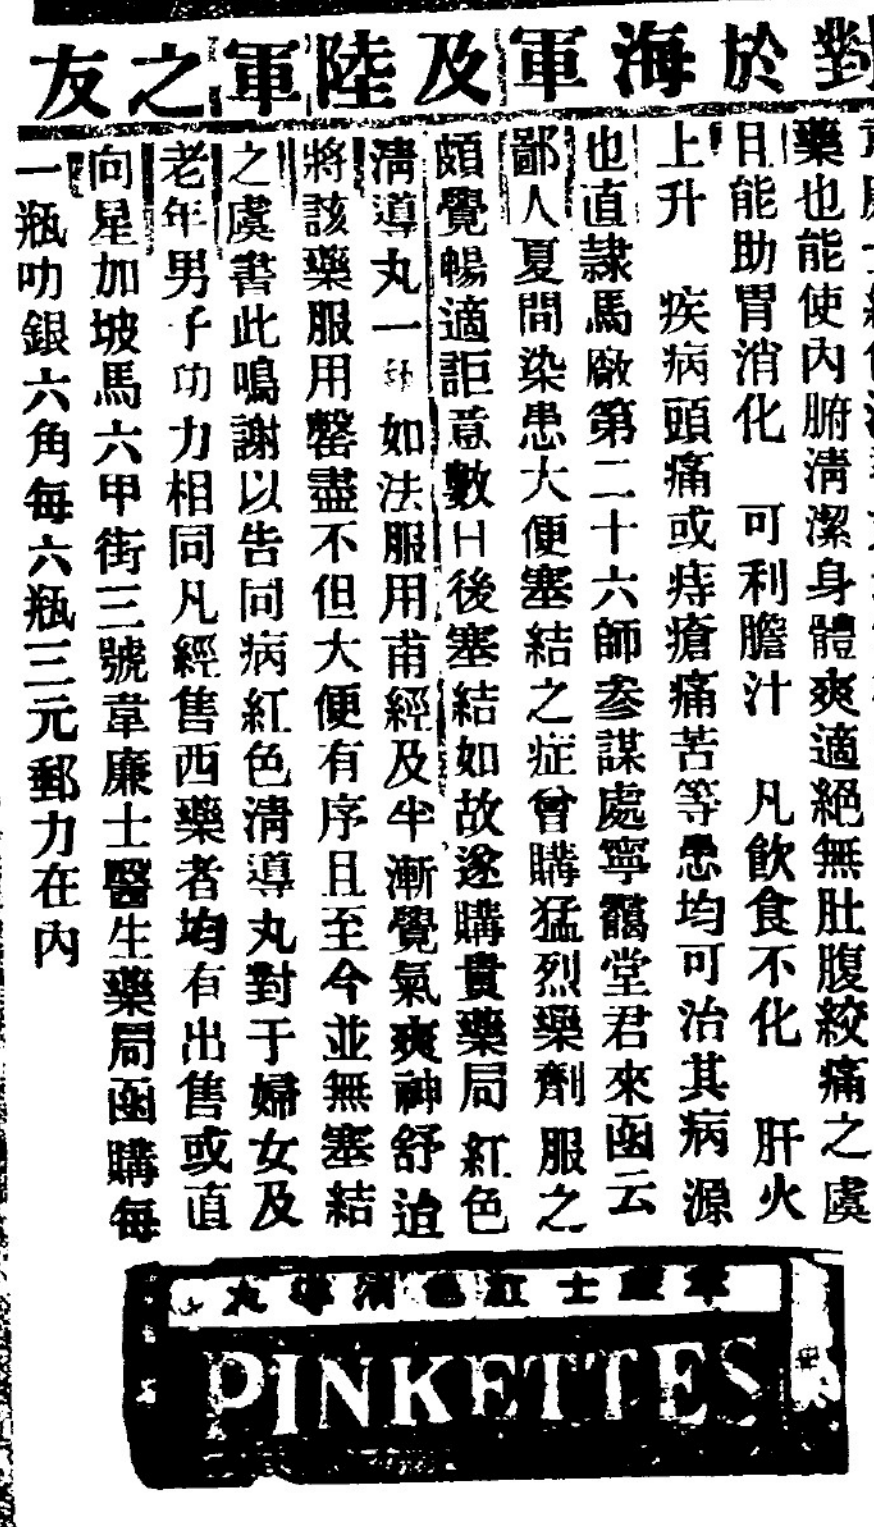 對於海軍及陸軍之友
藥也能使內腑淸潔身體爽適絕無肚腹絞痛之虞
且能助胃消化　可利膽汁　凡飲食不化　肝火
上升　疾病頭痛或痔瘡痛苦等患均可治其病源
也直隸馬廠第二十六師參謀處寧靄堂君來函云
鄙人夏間染患大便塞結之症曾購猛烈藥劑　服之
頗覺暢適詎意數日後塞結如故遂購貴藥局　紅色
淸導丸一　如法服用甫經及半漸覺氣爽神舒迨
將該藥服用罄盡不但大便有序且至今並無塞結
之虞書此鳴謝以告同病紅色淸導丸對于婦女及
老年男子功力相同凡經售西藥者均有出售或直
向星加坡馬六甲街三號韋廉士醫生藥局函購每
一瓶叻銀六角每六瓶三元郵力在內
韋廉士紅色淸導丸
PINKETTES